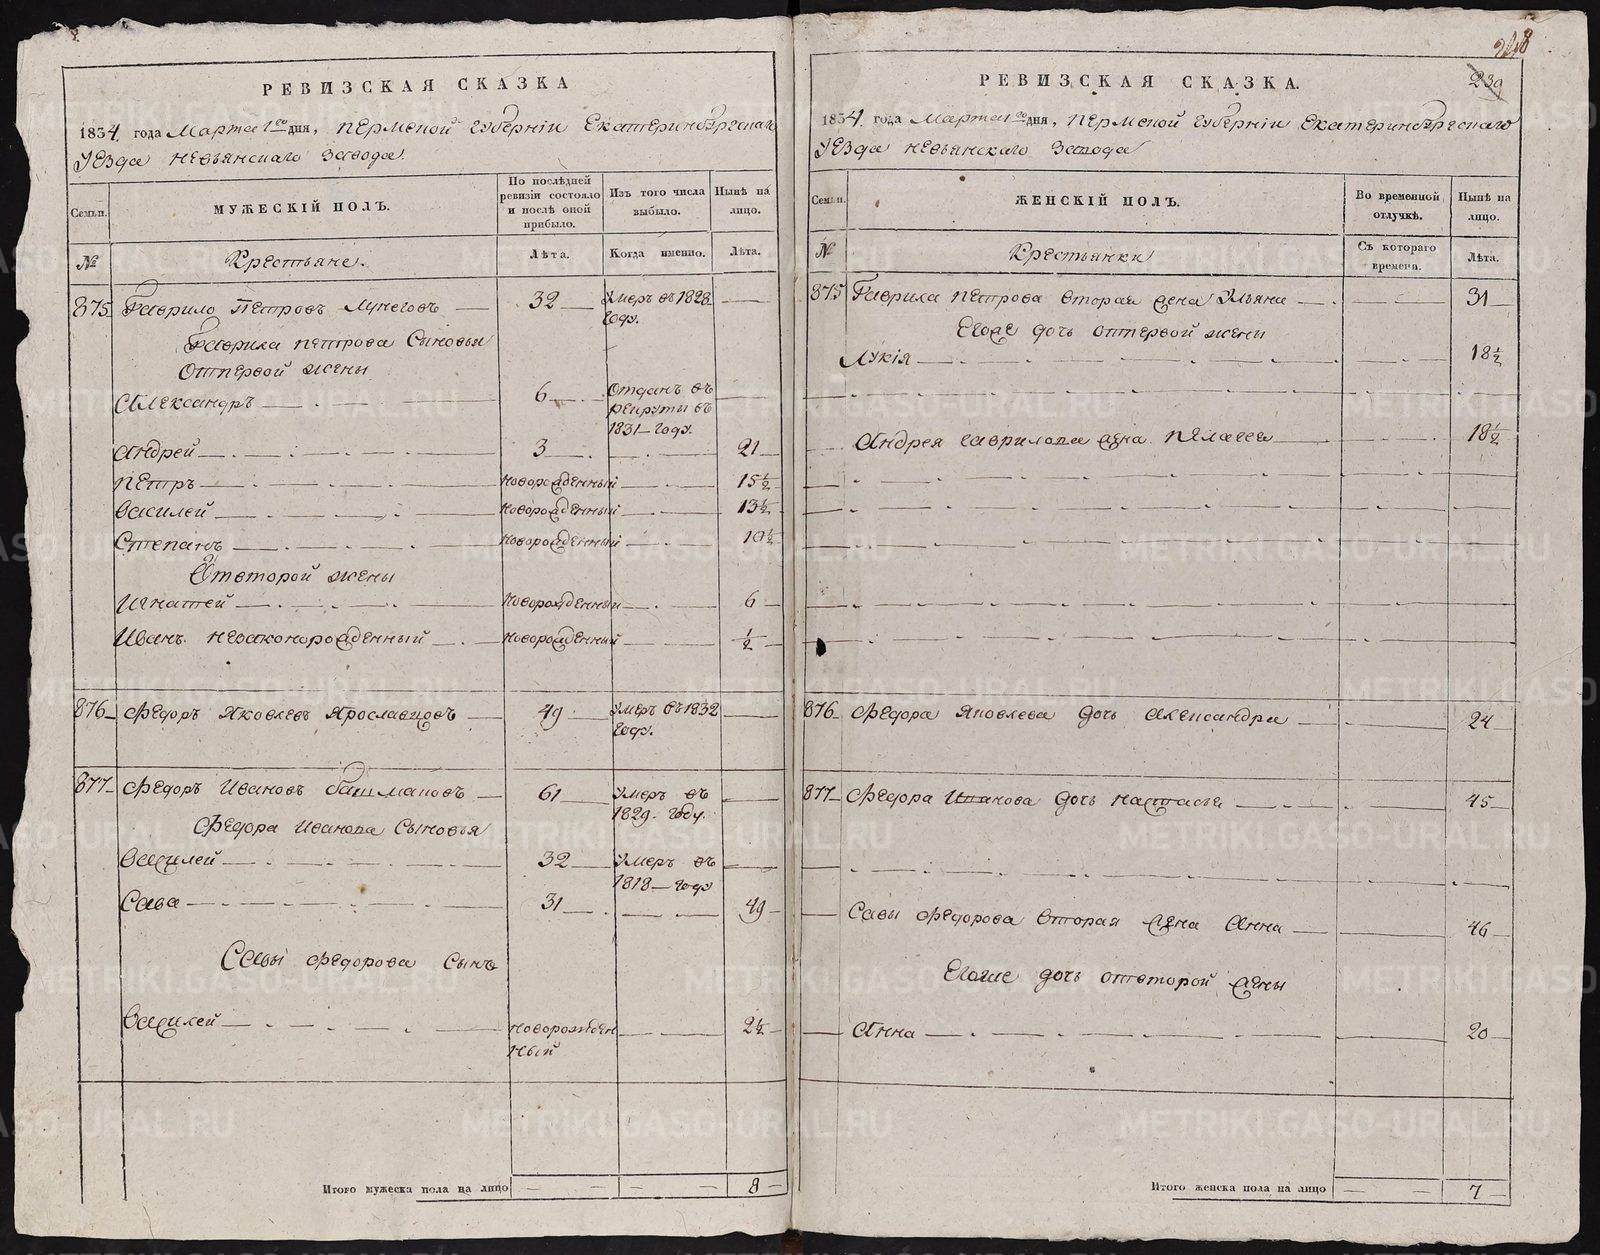 РЕВИЗСКАЯ СКАЗКА
1834 года Марта 1го дня, Пермской Губернiи Екатеринбургскаго
Уезда Невьянскаго Завода.
Семьи.
МУЖЕСКIЙ ПОЛЪ.
По послѣдней ревизiи состояло и послѣ оной прибыло.
Изъ того числа выбыло.
Нынѣ на лицо.
№
Крестьяне.
Лѣта.
Когда именно.
Лѣта.
875 Гаврило Петровъ 32 Умеръ въ 1828 году.
Гаврила Петрова Сыновья
Отпервой жены
Александръ 6 Отданъ въ рекруты въ 1831 году.
Андрей 3 21
Петръ новорожденный 15½
Василей новорожденный 13½
Степанъ новорожденный 10½
Отвторой жены
Игнатей новорожденный 6
Иванъ незаконорожденный новорожденный ½
876 Федоръ Яковлевъ Ярославцовъ 49 Умеръ въ 1832 году.
877 Федоръ Ивановъ Башмаковъ 61 Умеръ въ 1829 году.
Федора Иванова Сыновья
Василей 32 Умеръ въ 1818 году
Сава 31 49
Савы Федорова Сынъ
Василей новорожденный 2½
Итого мужеска пола на лицо 8
239
РЕВИЗСКАЯ СКАЗКА.
1834 года Марта 1го дня, Пермской Губернiи Екатеринбургскаго
Уезда Невьянскаго Завода
Семьи.
ЖЕНСКIЙ ПОЛЪ.
Во временной отлучкѣ.
Нынѣ на лицо.
№
Крестьянки
Съ котораго времени.
Лѣта.
875 Гаврила Петрова вторая жена Ульяна 31
Егоже дочь отпервой жены
Лукiя 18½
Андрея Гаврилова жена Пелагея 18½
876 Федора Яковлева дочь Александра 24
877 Федора Иванова дочь Настасья 45
Савы Федорова вторая жена Анна 46
Егоже дочь отвторой жены
Анна 20
Итого женска пола на лицо 7
METRIKI.GASO-URAL.RU